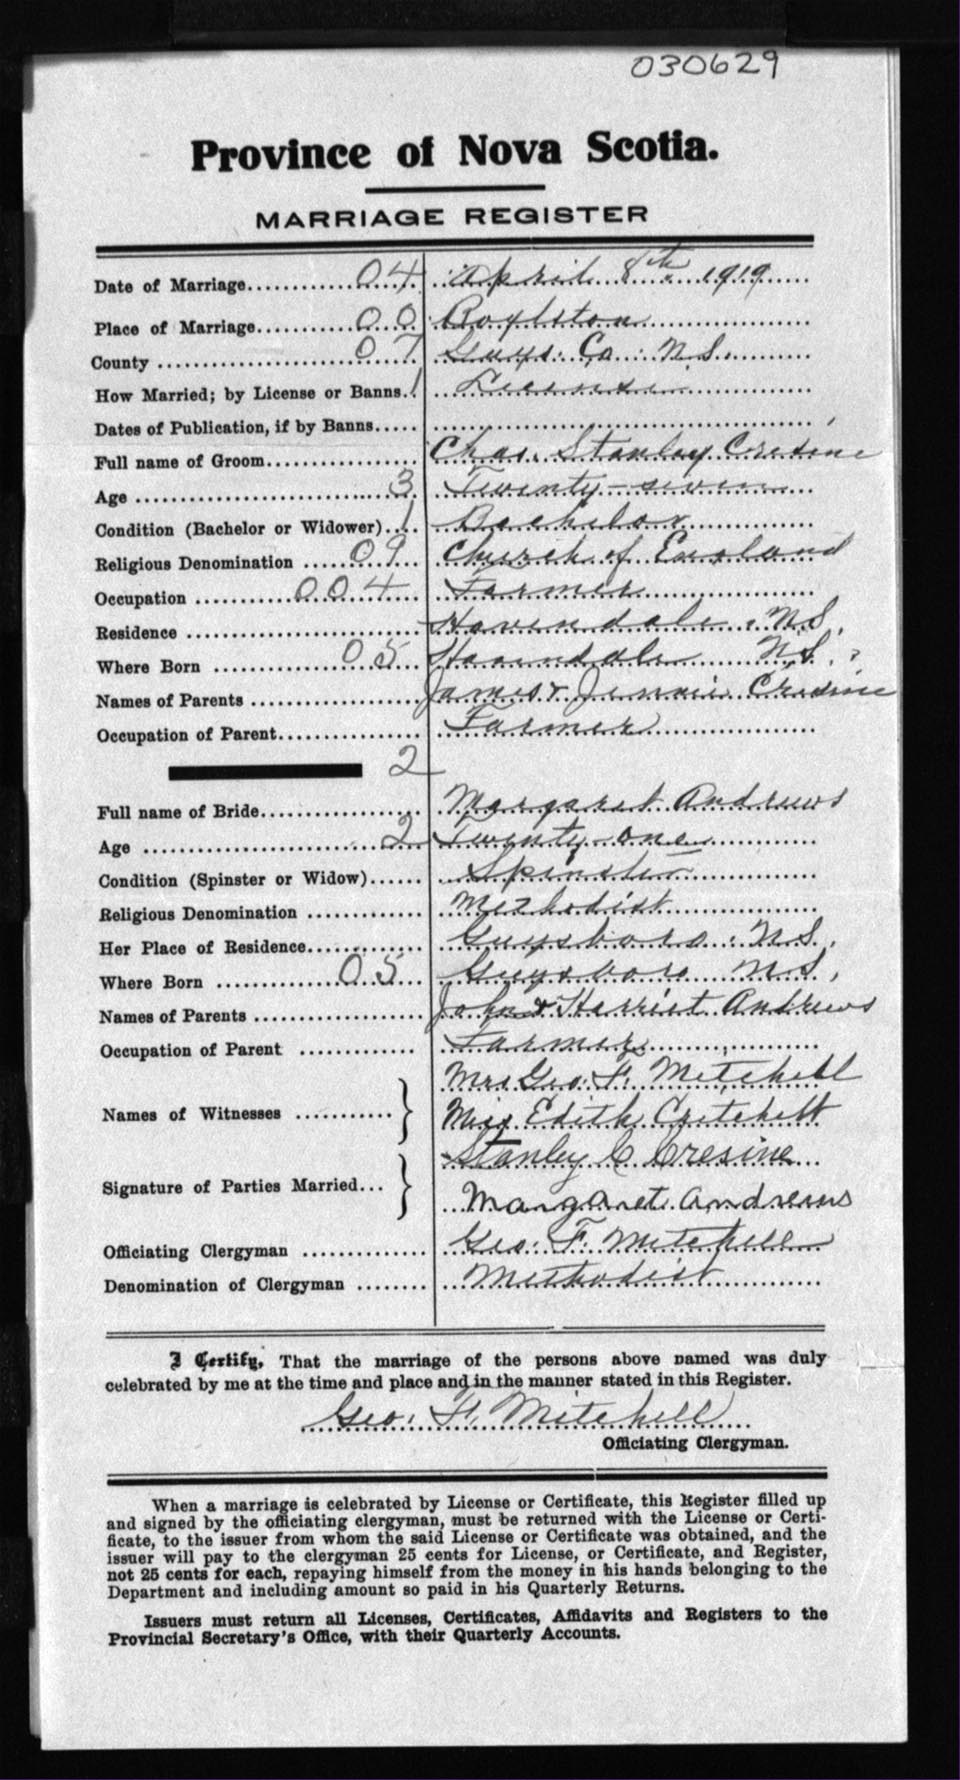 030629
Province of Nova Scotia.
MARRIAGE REGISTER
Date of Marriage 04 April 8th 1919
Place of Marriage 00 Boylston
County 07 Guys. Co. N.S.
How Married; by License or Banns 1 License
Dates of Publication, if by Banns
Full name of Groom Chas. Stanley Cresine
Age 3 Twenty-seven
Condition (Bachelor or Widower) 1 Bachelor
Religious Denomination 09 Church of England
Occupation 004 Farmer
Residence Havendale, N.S.
Where Born 05 Havendale N.S.
Names of Parents James & Jennie Cresine
Occupation of Parent Farmer
2
Full name of Bride Margaret Andrews
Age 2 Twenty-one
Condition (Spinster or Widow) Spinster
Religious Denomination Methodist
Her Place of Residence Guysboro, N.S.
Where Born 05 Guysboro N.S.
Names of Parents John & Harriet Andrews
Occupation of Parent Farmer
Mrs Geo. F. Mitchell
Names of Witnesses } Miss Edith Critchett
Stanley C Cresine
Signature of Parties Married... }
Margaret Andrews
Officiating Clergyman Geo. F. Mitchell
Denomination of Clergyman Methodist
I Certify, That the marriage of the persons above named was duly
celebrated by me at the time and place and in the manner stated in this Register.
Geo. F. Mitchell
Officiating Clergyman.
When a marriage is celebrated by License or Certificate, this Register filled up
and signed by the officiating clergyman, must be returned with the License or Certi-
ficate, to the issuer from whom the said License or Certificate was obtained, and the
issuer will pay to the clergyman 25 cents for License, or Certificate, and Register,
not 25 cents for each, repaying himself from the money in his hands belonging to the
Department and including amount so paid in his Quarterly Returns.
Issuers must return all Licenses, Certificates, Affidavits and Registers to the
Provincial Secretary's Office, with their Quarterly Accounts.